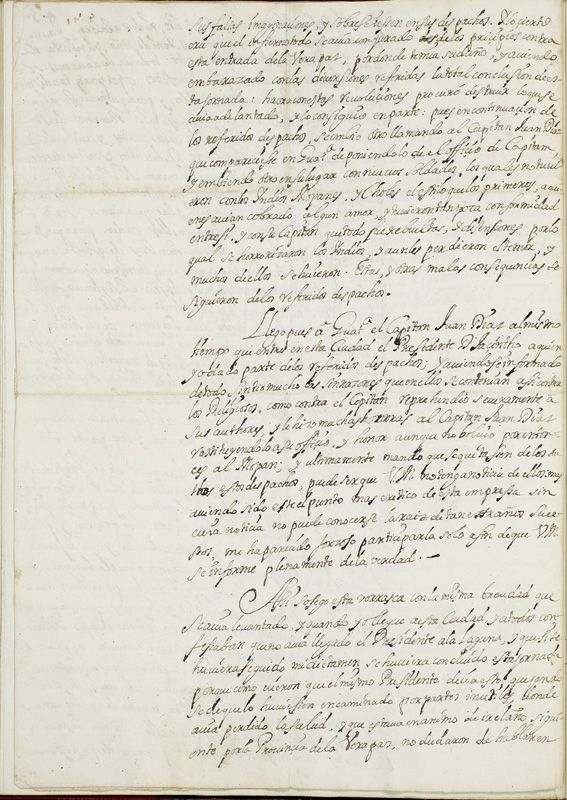 sus falsas imaginaciones, y sobreseiesen en sus despachos. Lo cierto
era que el infierno todo se avia conjurado desde los principios contra
esta entrada de la Verapaz, por donde temia su daño, y aviendo
embarazado con las diversiones referidas la total conclusion de es-
ta jornada: haora con estas revoluciones procurò destruir lo que se
avia adelantado, y lo consiguiò en parte: pues en continuacion de
los referidos despachos, se embiò otro llamando al Capitan Juan Diaz
que compareciesse en Guatᵃ deponiendolo de el Officio de Capitan,
y embiando otro en su lugar con nuevos soldados, los quales no tuvi-
eron con los Indios Mopanes, y Choles el estilo que los primeros, a qui-
enes avian cobrado algun amor, y tuvieron tan poca conformidad
entre si, y con su Capitan que todo fue rebueltas, y disensiones por lo
qual se horrorizaron los Indios, y aun les perdieron el temor, y
muchos de ellos se huieron. Estas, y otras malas consequencias se
siguieron de los referidos despachos.
Llegò pues à Guatᵃ el Capitan Juan Diaz al mismo
tiempo que entrò en esta Ciudad el Presidente D. Jacintho a quien
yo di parte de los referidos despachos; y aviendose informado
de todo sintiò mucho las sinrazones que en ellos se contenian assi contra
los Religiosos, como contra el Capitan reprehendiò severamente a
sus authores, y le hizo muchas honrras al Capitan Juan Diaz
restituyendolo a su officio, y honor aunque no bolviò por enton-
ces al Mopan; y ultimamente mandò que se quitassen de los au-
tos estos despachos, puede ser que VM no tenga noticia de ellos, mas
aviendo sido este el punto mas critico de esta empressa sin
cuia noticia no puede conocerse la raiz de tan estraños suce-
sos, me ha parecido forzoso participarla solo a fin de que VM.
se informe plenamente de la verdad.
Assi sosegò esta borrasca con la misma brevedad que
se avia levantado, y quando yo lleguè a esta Ciudad, ya todos con-
fesaban que no avia llegado el Presidente a la Laguna, y que si se
huviera seguido mi dictamen, se huviera concluido esta jornada
porque como vieron que el mismo Presidente decia esto, quejando
se de que lo huviessen encaminado por partes inutiles, donde
avia perdido la salud, y que estava en animo de ir el año sigui-
ente por la Provincia de la Verapaz, no dudaron de hablar en